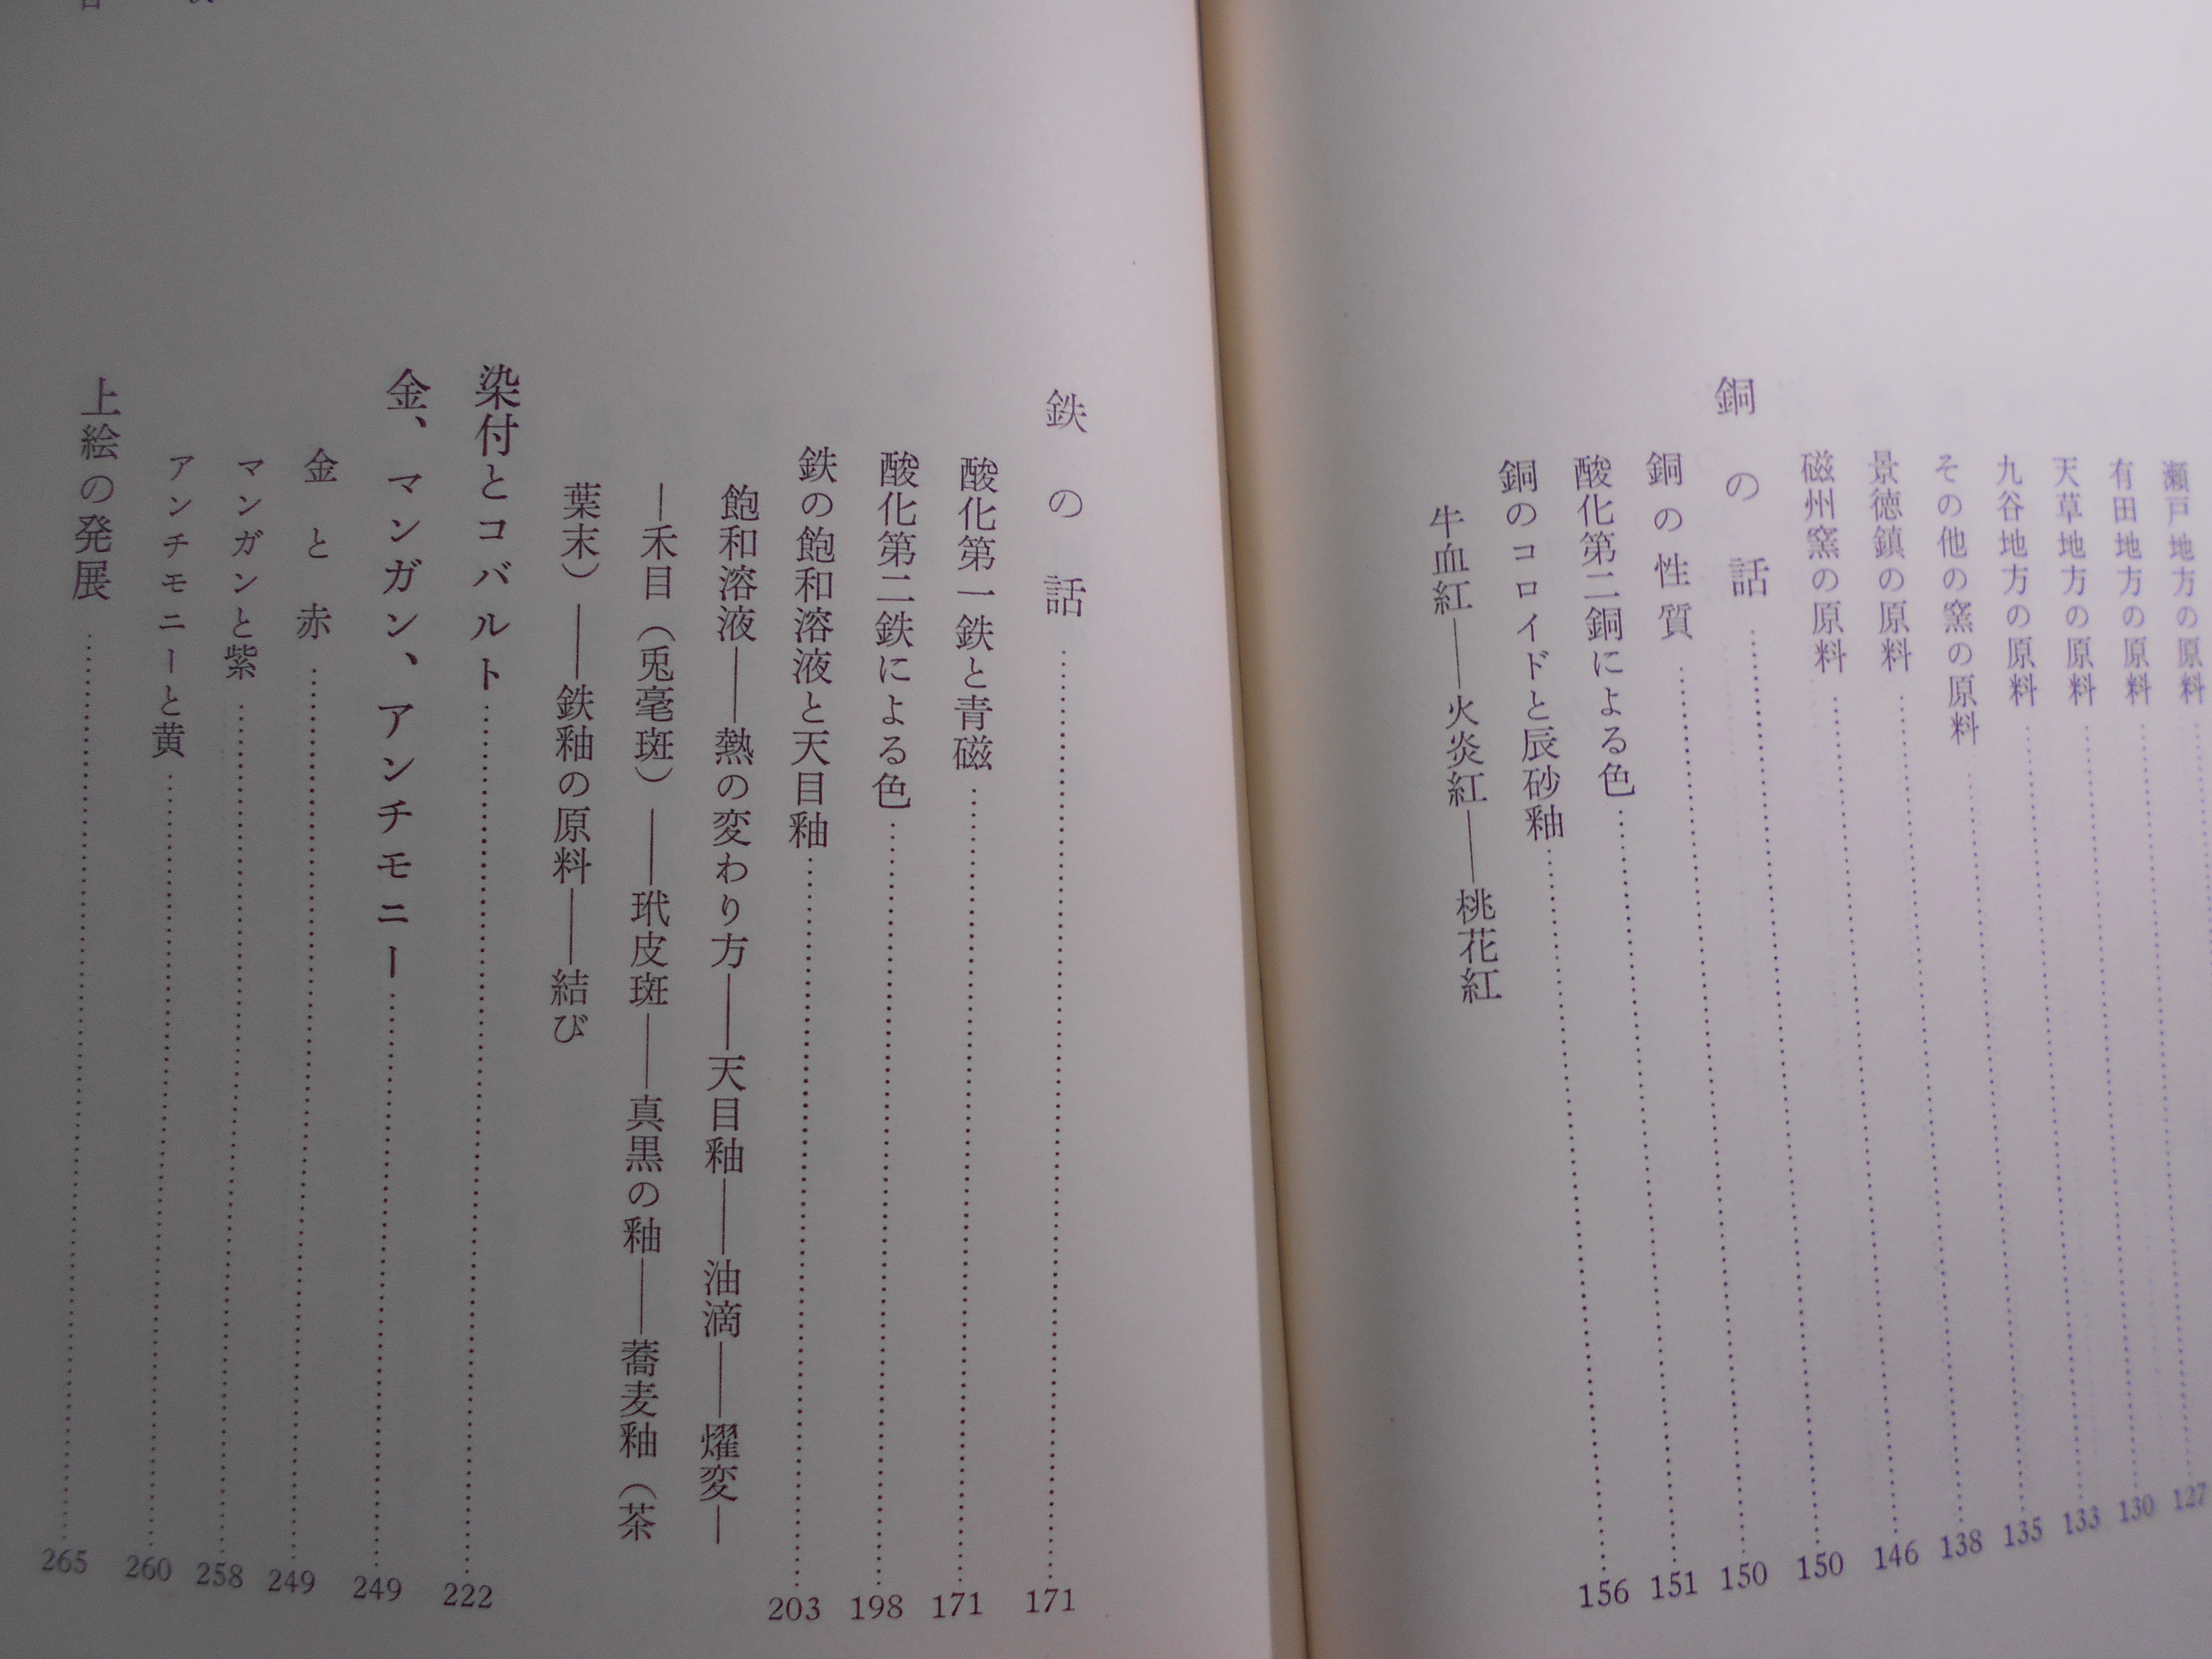 瀬戸地方の原料
有田地方の原料……127
天草地方の原料……130
九谷地方の原料……133
その他の窯の原料……135
景徳鎮の原料……138
磁州窯の原料……146
銅の話……150
銅の性質……150
酸化第二銅による色……151
銅のコロイドと辰砂釉……156
牛血紅――火炎紅――桃花紅
鉄の話……171
酸化第一鉄と青磁……171
酸化第二鉄による色……198
鉄の飽和溶液と天目釉……203
飽和溶液――熱の変わり方――天目釉――油滴――燿変―
―禾目（兎毫斑）――玳皮斑――真黒の釉――蕎麦釉（茶
葉末）――鉄釉の原料――結び
染付とコバルト……222
金、マンガン、アンチモニー……249
金と赤……249
マンガンと紫……258
アンチモニーと黄……260
上絵の発展……265